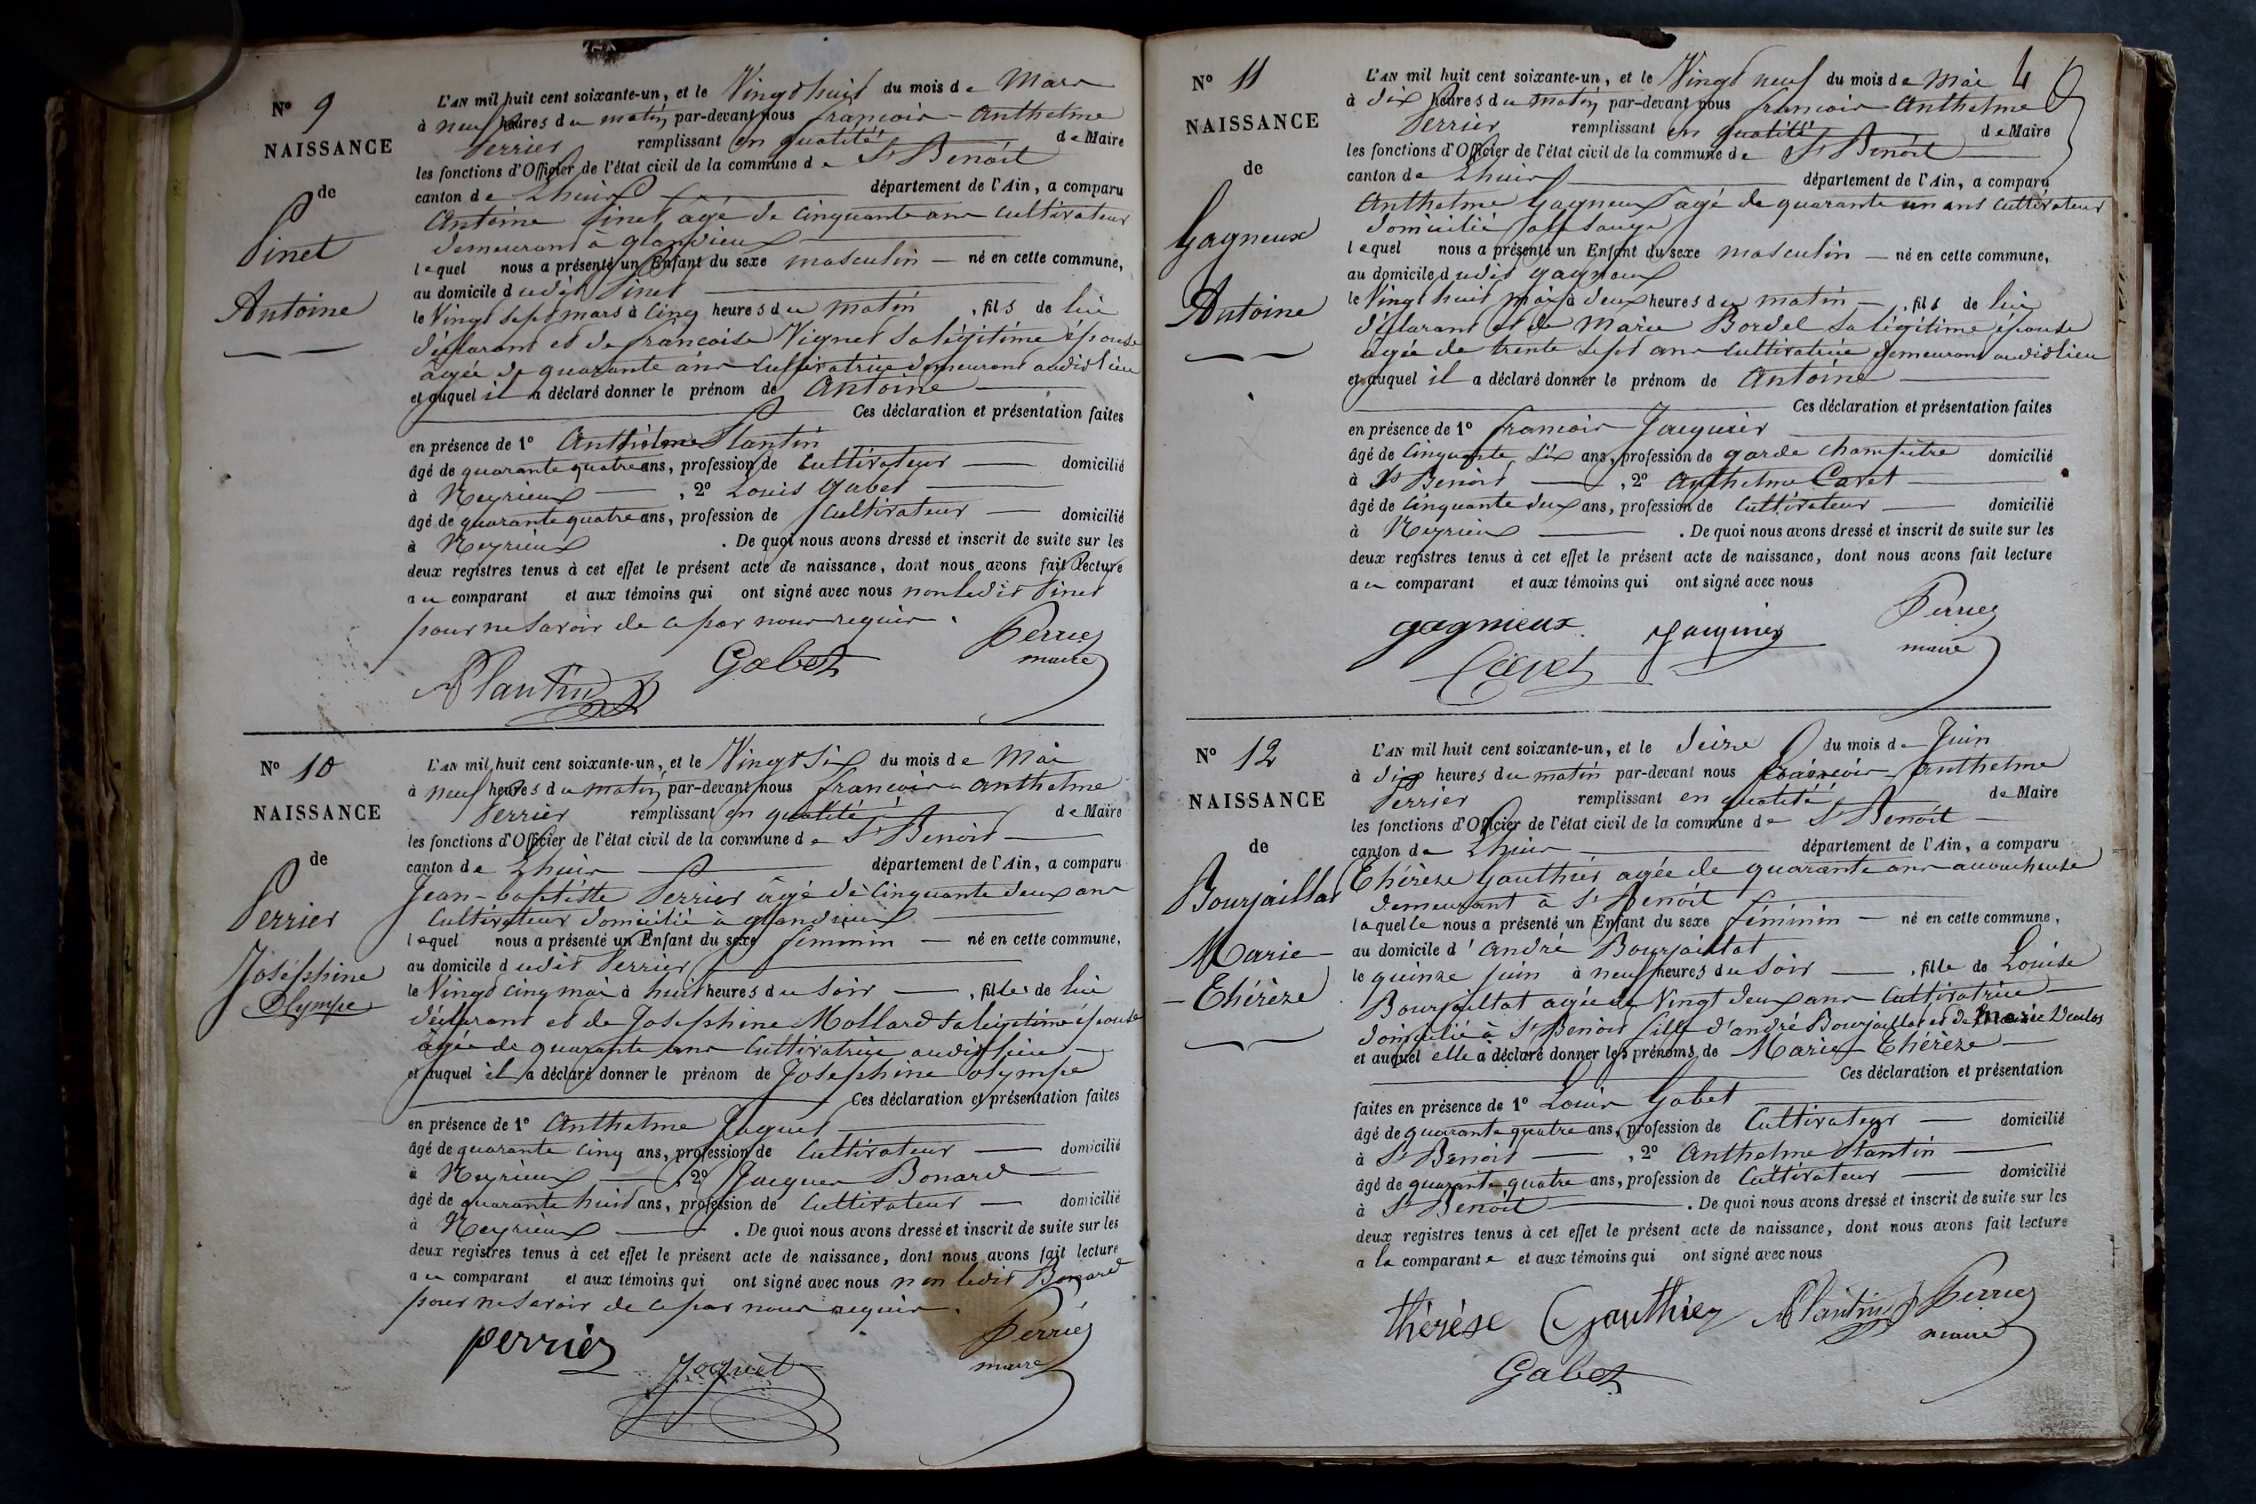 N° 9
NAISSANCE
de
Pinet
Antoine
L'AN mil huit cent soixante-un, et le Vingt huit du mois de Mars
à neuf heures du matin par-devant nous françois-Anthelme
Perrier remplissant en qualité de Maire
les fonctions d'Officier de l'état civil de la commune de St Benoit
canton de Lhuis département de l'Ain, a comparu
Antoine Pinet âgé de cinquante ans cultivateur
demeurant à glandieux
lequel nous a présenté un Enfant du sexe masculin né en cette commune,
au domicile dudit Pinet
le Vingt sept mars à cinq heures du matin, fils de lui
déclarant et de francoise Vignet sa légitime épouse
agée de quarante ans cultivatrice demeurant audit lieu
et auquel il a déclaré donner le prénom de Antoine
Ces déclaration et présentation faites
en présence de 1° Anthelme Plantin
âgé de quarante quatre ans, profession de cultivateur domicilié
à Neyrieux, 2° Louis Gabet
âgé de quarante quatre ans, profession de Cultivateur domicilié
à Neyrieux. De quoi nous avons dressé et inscrit de suite sur les
deux registres tenus à cet effet le présent acte de naissance, dont nous avons fait lecture
au comparant et aux témoins qui ont signé avec nous non ledit Pinet
pour ne savoir de ce par nous requis.
Perrier
maire
Plantin
Gabet
N° 10
NAISSANCE
de
Perrier
Joséphine
Olympe
L'AN mil huit cent soixante-un, et le Vingt Six du mois de Mai
à neuf heures du matin par-devant nous françois Anthelme
Perrier remplissant en qualité de Maire
les fonctions d'Officier de l'état civil de la commune de St Benoit
canton de Lhuis département de l'Ain, a comparu
Jean-baptiste Perrier âgé de cinquante deux ans
Cultivateur domicilié à glandieux
lequel nous a présenté un Enfant du sexe féminin né en cette commune,
au domicile dudit Perrier
le Vingt cinq mai à huit heures du soir, fille de lui
déclarant et de Josephine Mollard sa légitime épouse
agée de quarante ans cultivatrice audit lieu
et auquel il a déclaré donner le prénom de Josephine olympe
Ces déclaration et présentation faites
en présence de 1° Anthelme Joguet
âgé de quarante cinq ans, profession de Cultivateur domicilié
à Neyrieux, 2° Jacques Bonard
âgé de quarante huit ans, profession de Cultivateur domicilié
à Neyrieux. De quoi nous avons dressé et inscrit de suite sur les
deux registres tenus à cet effet le présent acte de naissance, dont nous avons fait lecture
au comparant et aux témoins qui ont signé avec nous non ledit Bonard
pour ne savoir de ce par nous requis.
Perrier
maire
perrier
Joguet
4
N° 11
NAISSANCE
de
Gagneux
Antoine
L'AN mil huit cent soixante-un, et le Vingt neuf du mois de Mai
à dix heures du matin par-devant nous francois Anthelme
Perrier remplissant en qualité de Maire
les fonctions d'Officier de l'état civil de la commune de St Benoit
canton de Lhuis département de l'Ain, a comparu
Anthelme Gagneux agé de quarante un ans cultivateur
domicilié
lequel nous a présenté un Enfant du sexe masculin né en cette commune,
au domicile dudit gagneux
le Vingt huit mai à deux heures du matin, fils de lui
déclarant et de Marie Bordel sa légitime épouse
agée de trente sept ans cultivatrice demeurant audit lieu
et auquel il a déclaré donner le prénom de Antoine
Ces déclaration et présentation faites
en présence de 1° francois Jacquier
âgé de cinquante six ans, profession de garde champêtre domicilié
à St Benoit, 2° Anthelme Cavet
âgé de cinquante deux ans, profession de Cultivateur domicilié
à Neyrieux. De quoi nous avons dressé et inscrit de suite sur les
deux registres tenus à cet effet le présent acte de naissance, dont nous avons fait lecture
au comparant et aux témoins qui ont signé avec nous
Perrier
maire
gagnieux
Jacquier
Cavet
N° 12
NAISSANCE
de
Bourjaillat
Marie-
Thérèze
L'AN mil huit cent soixante-un, et le Seize du mois de Juin
à dix heures du matin par-devant nous françois Anthelme
Perrier remplissant en qualité de Maire
les fonctions d'Officier de l'état civil de la commune de St Benoit
canton de Lhuis département de l'Ain, a comparu
Thérèze Gauthier agée de quarante ans accoucheuse
demeurant à St Benoit
laquelle nous a présenté un Enfant du sexe féminin né en cette commune,
au domicile d'André Bourjaillat
le quinze juin à neuf heures du soir, fille de Louise
Bourjaillat agée de Vingt deux ans cultivatrice
domicilié à St Benoit fille d'andré Bourjaillat et de Marie
et auquel elle a déclaré donner les prénoms de Marie Thérèze
Ces déclaration et présentation
faites en présence de 1° Louis Gabet
âgé de quarante quatre ans, profession de Cultivateur domicilié
à St Benoit, 2° Anthelme Plantin
âgé de quarante quatre ans, profession de Cultivateur domicilié
à St Benoit. De quoi nous avons dressé et inscrit de suite sur les
deux registres tenus à cet effet le présent acte de naissance, dont nous avons fait lecture
a la comparante et aux témoins qui ont signé avec nous
thérèse Gauthier
Plantin
Perrier
maire
Gabet